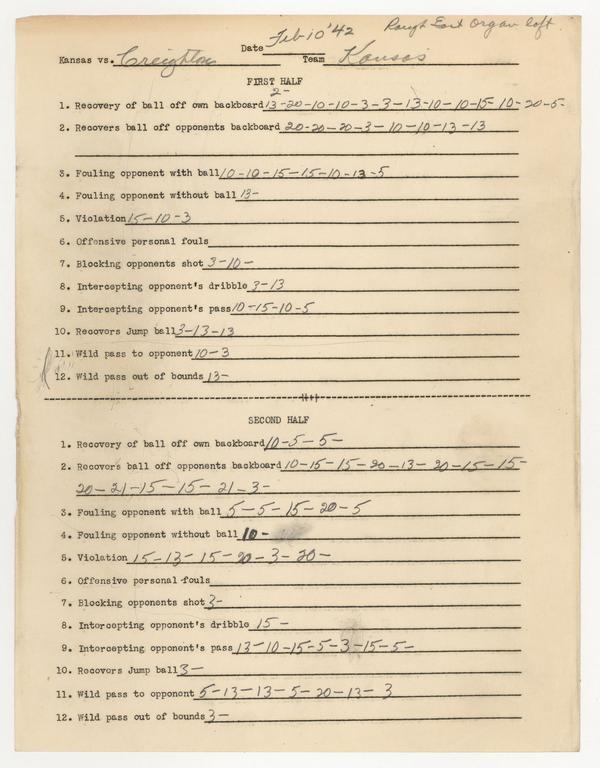 Rough East Organ loft
Date Feb 10 '42
Kansas vs. Creighton Team Kansas
FIRST HALF
2-
1. Recovery of ball off own backboard 13-20-10-10-3-3-13-10-10-15-10-20-5-
2. Recovers ball off opponents backboard 20-20-20-3-10-10-13-13
3. Fouling opponent with ball 10-10-15-15-10-13-5
4. Fouling opponent without ball 13-
5. Violation 15-10-3
6. Offensive personal fouls
7. Blocking opponents shot 3-10-
8. Intercepting opponent's dribble 3-13
9. Intercepting opponent's pass 10-15-10-5
10. Recovers Jump ball 3-13-13
11. Wild pass to opponent 10-3
12. Wild pass out of bounds 13-
SECOND HALF
1. Recovery of ball off own backboard 10-5-5-
2. Recovers ball off opponents backboard 10-15-15-20-13-20-15-15-
20-21-15-15-21-3-
3. Fouling opponent with ball 5-5-15-20-5
4. Fouling opponent without ball 10-
5. Violation 15-13-15-20-3-20-
6. Offensive personal fouls
7. Blocking opponents shot 3-
8. Intercepting opponent's dribble 15-
9. Intercepting opponent's pass 13-10-15-5-3-15-5-
10. Recovers Jump ball 3-
11. Wild pass to opponent 5-13-13-5-20-13-3
12. Wild pass out of bounds 3-